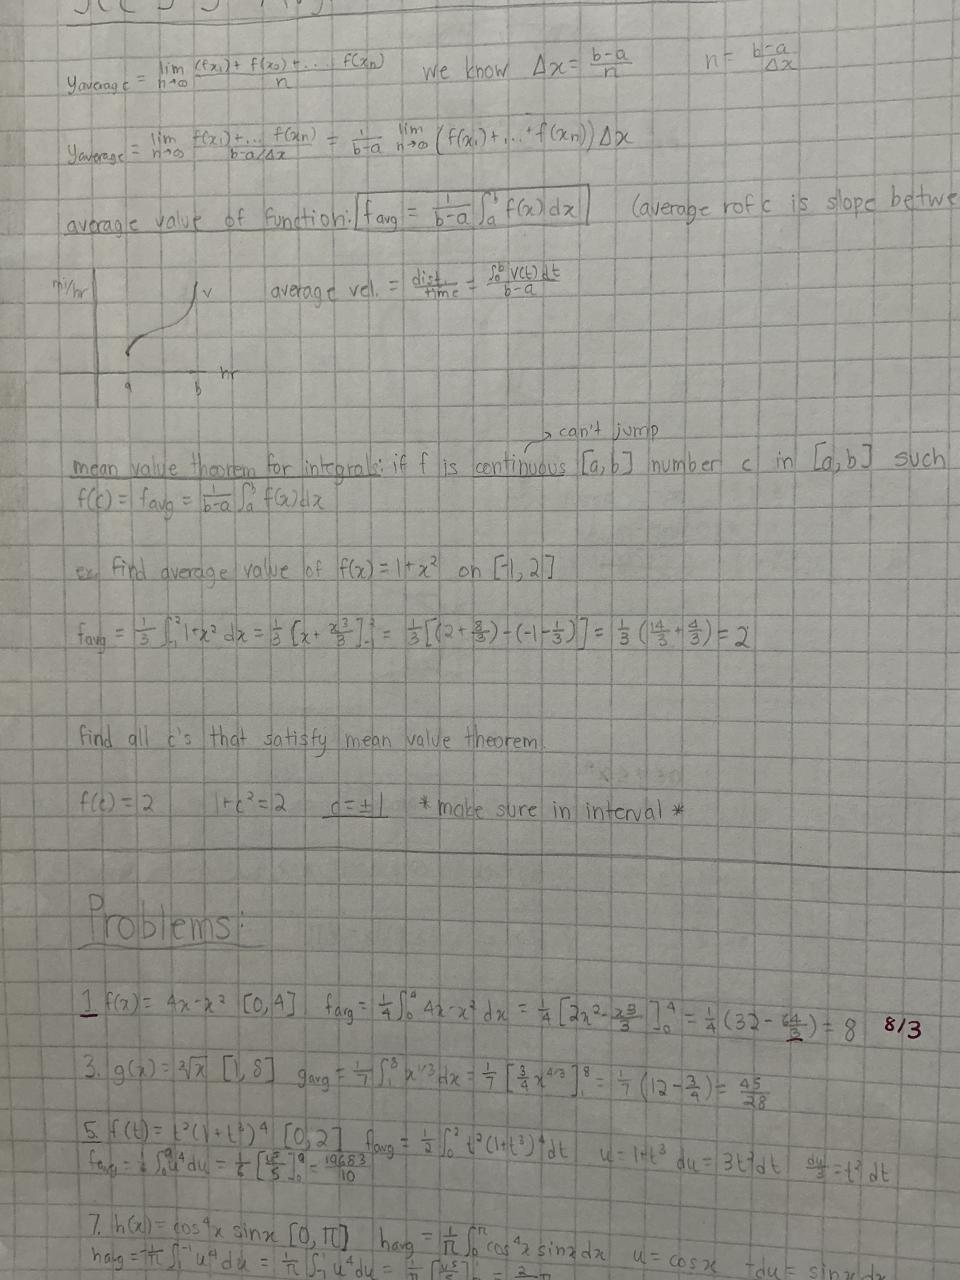 y average = lim n→∞ (f(x₁) + f(x₂) + ... f(xn))/n   we know Δx = (b-a)/n   n = (b-a)/Δx
y average = lim n→∞ (f(x₁) + ... f(xn))/(b-a/Δx) = 1/(b-a) lim n→∞ (f(x₁) + ... + f(xn)) Δx
average value of function: f avg = 1/(b-a) ∫ₐᵇ f(x) dx   (average rofc is slope betwe
mi/hr   v   average vel. = dist./time = ∫ₐᵇ v(t) dt/(b-a)
a   b   hr
→ can't jump
mean value theorem for integrals: if f is continuous [a,b] number c in [a,b] such
f(c) = f avg = 1/(b-a) ∫ₐᵇ f(x)dx
ex. find average value of f(x) = 1+x² on [-1, 2]
f avg = 1/3 ∫₋₁² 1+x² dx = 1/3 [x + x³/3]₋₁² = 1/3 [(2 + 8/3) - (-1 - 1/3)] = 1/3 (14/3 + 4/3) = 2
find all c's that satisfy mean value theorem.
f(c) = 2   1+c² = 2   c = ±1   * make sure in interval *
Problems:
1 f(x) = 4x-x² [0,4]   f avg = 1/4 ∫₀⁴ 4x-x² dx = 1/4 [2x² - x³/3]₀⁴ = 1/4 (32 - 64/3) = 8   8/3
3. g(x) = ³√x [1,8]   g avg = 1/7 ∫₁⁸ x^1/3 dx = 1/7 [3/4 x^4/3]₁⁸ = 1/7 (12 - 3/4) = 45/28
5. f(t) = t²(1+t³)⁴ [0,2]   f avg = 1/2 ∫₀² t²(1+t³)⁴ dt   u = 1+t³   du = 3t²dt   du/3 = t² dt
f avg = 1/6 ∫₀⁹ u⁴ du = 1/6 [u⁵/5]₀⁹ = 19683/10
7. h(x) = cos⁴x sinx [0, π]   h avg = 1/π ∫₀^π cos⁴x sinx dx   u = cosx   -du = sinx dx
h avg = -1/π ∫₁⁻¹ u⁴ du = 1/π ∫₋₁¹ u⁴ du =